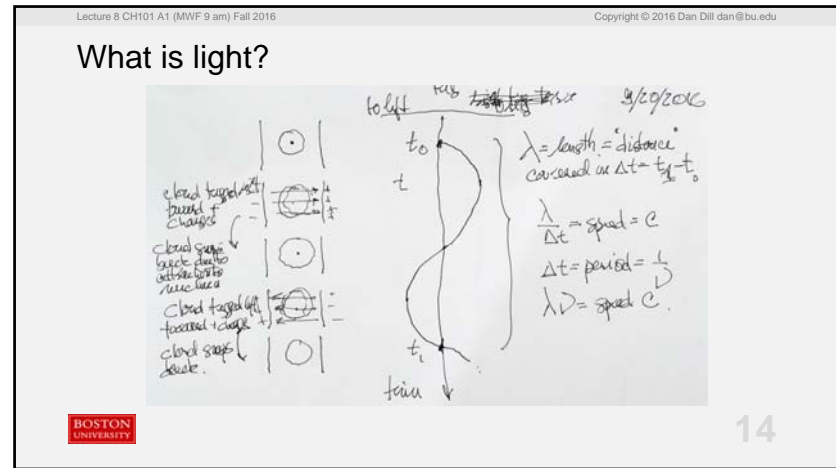 Lecture 8 CH101 A1 (MWF 9 am) Fall 2016
Copyright © 2016 Dan Dill dan@bu.edu
What is light?
to left
9/20/2016
t₀
t
t₁
cloud tugged right
toward +
charges
cloud
back due to
attraction to
nucleus
cloud tugged left
toward +
cloud
back.
λ = length = "distance"
covered in Δt = t₁ - t₀
λ/Δt = speed = c
Δt = period = 1/ν
λν = speed c.
BOSTON
UNIVERSITY
14